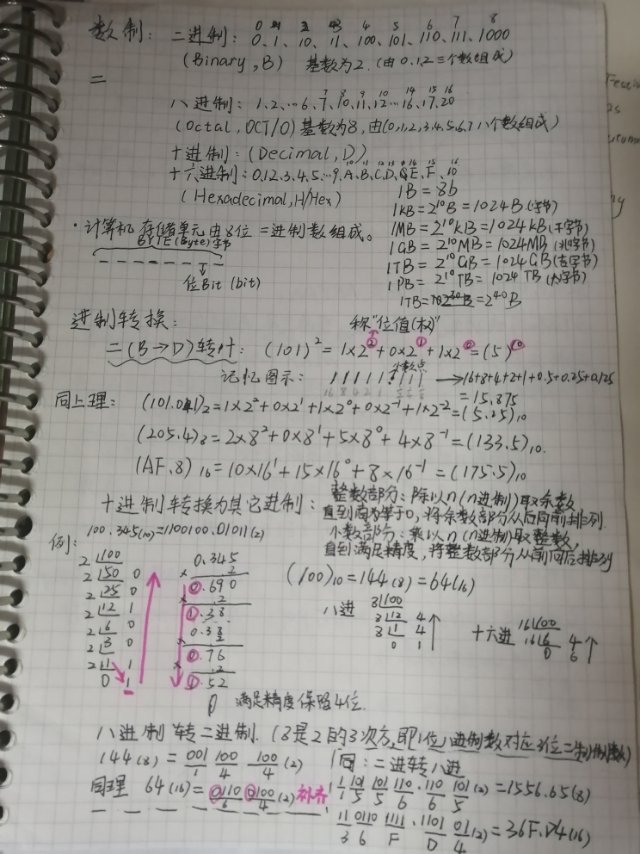 数制: 二进制: 0、1、10、11、100、101、110、111、1000
(Binary,B) 基数为2.(由0,1,2三个数组成)
二
八进制: 1、2、…6、7、10、11、12…16、17、20
(Octal,OCT/O)基数为8,由(0,1,2,3,4,5,6,7八个数组成)
十进制:(Decimal,D)
十六进制:0,1,2,3,4,5…9,A,B,C,D,E,F、10
(Hexadecimal,H/Hex)
1B=8b
1KB=2^10B=1024B(字节)
1MB=2^10KB=1024KB(千字节)
1GB=2^10MB=1024MB(兆字节)
1TB=2^10GB=1024GB(吉字节)
1PB=2^10TB=1024TB(太字节)
1TB=2^40B
·计算机存储单元由8位二进制数组成。
BYTE(Byte)字节
位Bit(bit)
进制转换:
称"位值(权)"
二(B→D)转十: (101)^2=1×2^2+0×2^1+1×2^0=(5)^10
小数点
记忆图示: 1 1 1 1 1 . 1 1 1 →16+8+4+2+1+0.5+0.25+0.125
=15.875
同上理: (101.01)2=1×2^2+0×2^1+1×2^0+0×2^-1+1×2^-2=(5.25)10
(205.4)8=2×8^2+0×8^1+5×8^0+4×8^-1=(133.5)10.
(AF.8)16=10×16^1+15×16^0+8×16^-1=(175.5)10
十进制转换为其它进制:
整数部分:除以n(n进制)取余数
直到商为等于0,将余数部分从后向前排列
小数部分:乘以n(n进制)取整数,
直到满足精度,将整数部分从前向后排列
100.345(10)=1100100.01011(2)
例:
2 100
2 50 0
2 25 0
2 12 1
2 6 0
2 3 0
2 1 1
0 1
0.345
× 2
0.690
× 2
1.38
0.38
× 2
0.76
× 2
1.52
满足精度保留4位.
(100)10=144(8)=64(16)
八进
8 100
8 12 4
8 1 4
0 1
十六进
16 100
16 6 4
0 6
八进制转二进制.(8是2的3次方,即1位八进制数对应3位二进制数)
144(8)=001 100 100(2)
1 4 4
同理 64(16)=0110 0100(2)补齐
6 4
同:二进转八进
1 101 101 110.110 101(2)=1556.65(8)
1 5 5 6 6 5
11 0110 1111.1101 01(2)=36F.D4(16)
3 6 F D 4